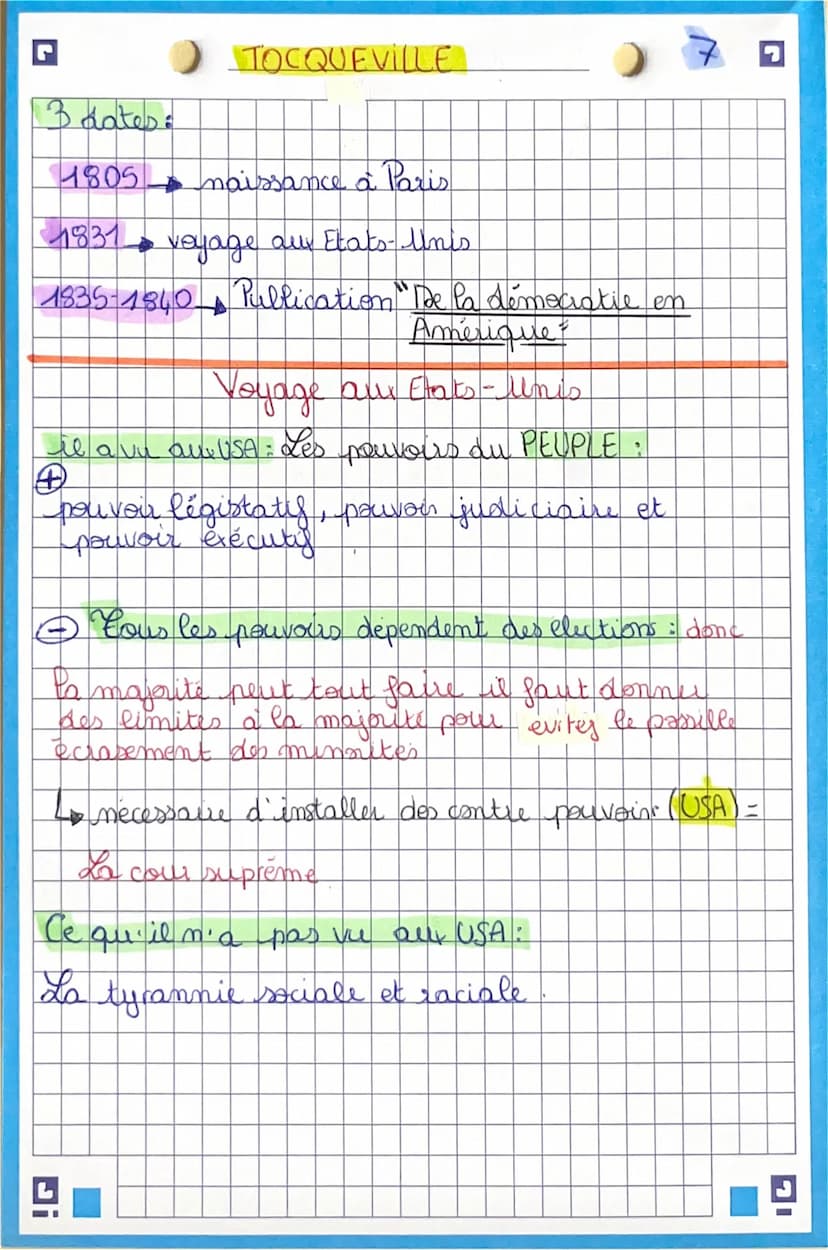 TOCQUEVILLE
7
3 dates:
1805 → naissance à Paris
1831 → voyage aux Etats-Unis
1835-1840 → Publication "De la démocratie en
Amérique"
Voyage aux Etats-Unis
il a vu aux USA : Les pouvoirs du PEUPLE :
+
pouvoir législatif, pouvoir judiciaire et
pouvoir éxécutif
- Tous les pouvoirs dépendent des elections : donc
la majorité peut tout faire il faut donner
des limites à la majorité pour evites le possille
écrasement des minorités
↳ nécessaire d'installer des contre pouvoirs (USA) =
La cour suprême
Ce qu'il n'a pas vu aux USA :
La tyrannie sociale et raciale.